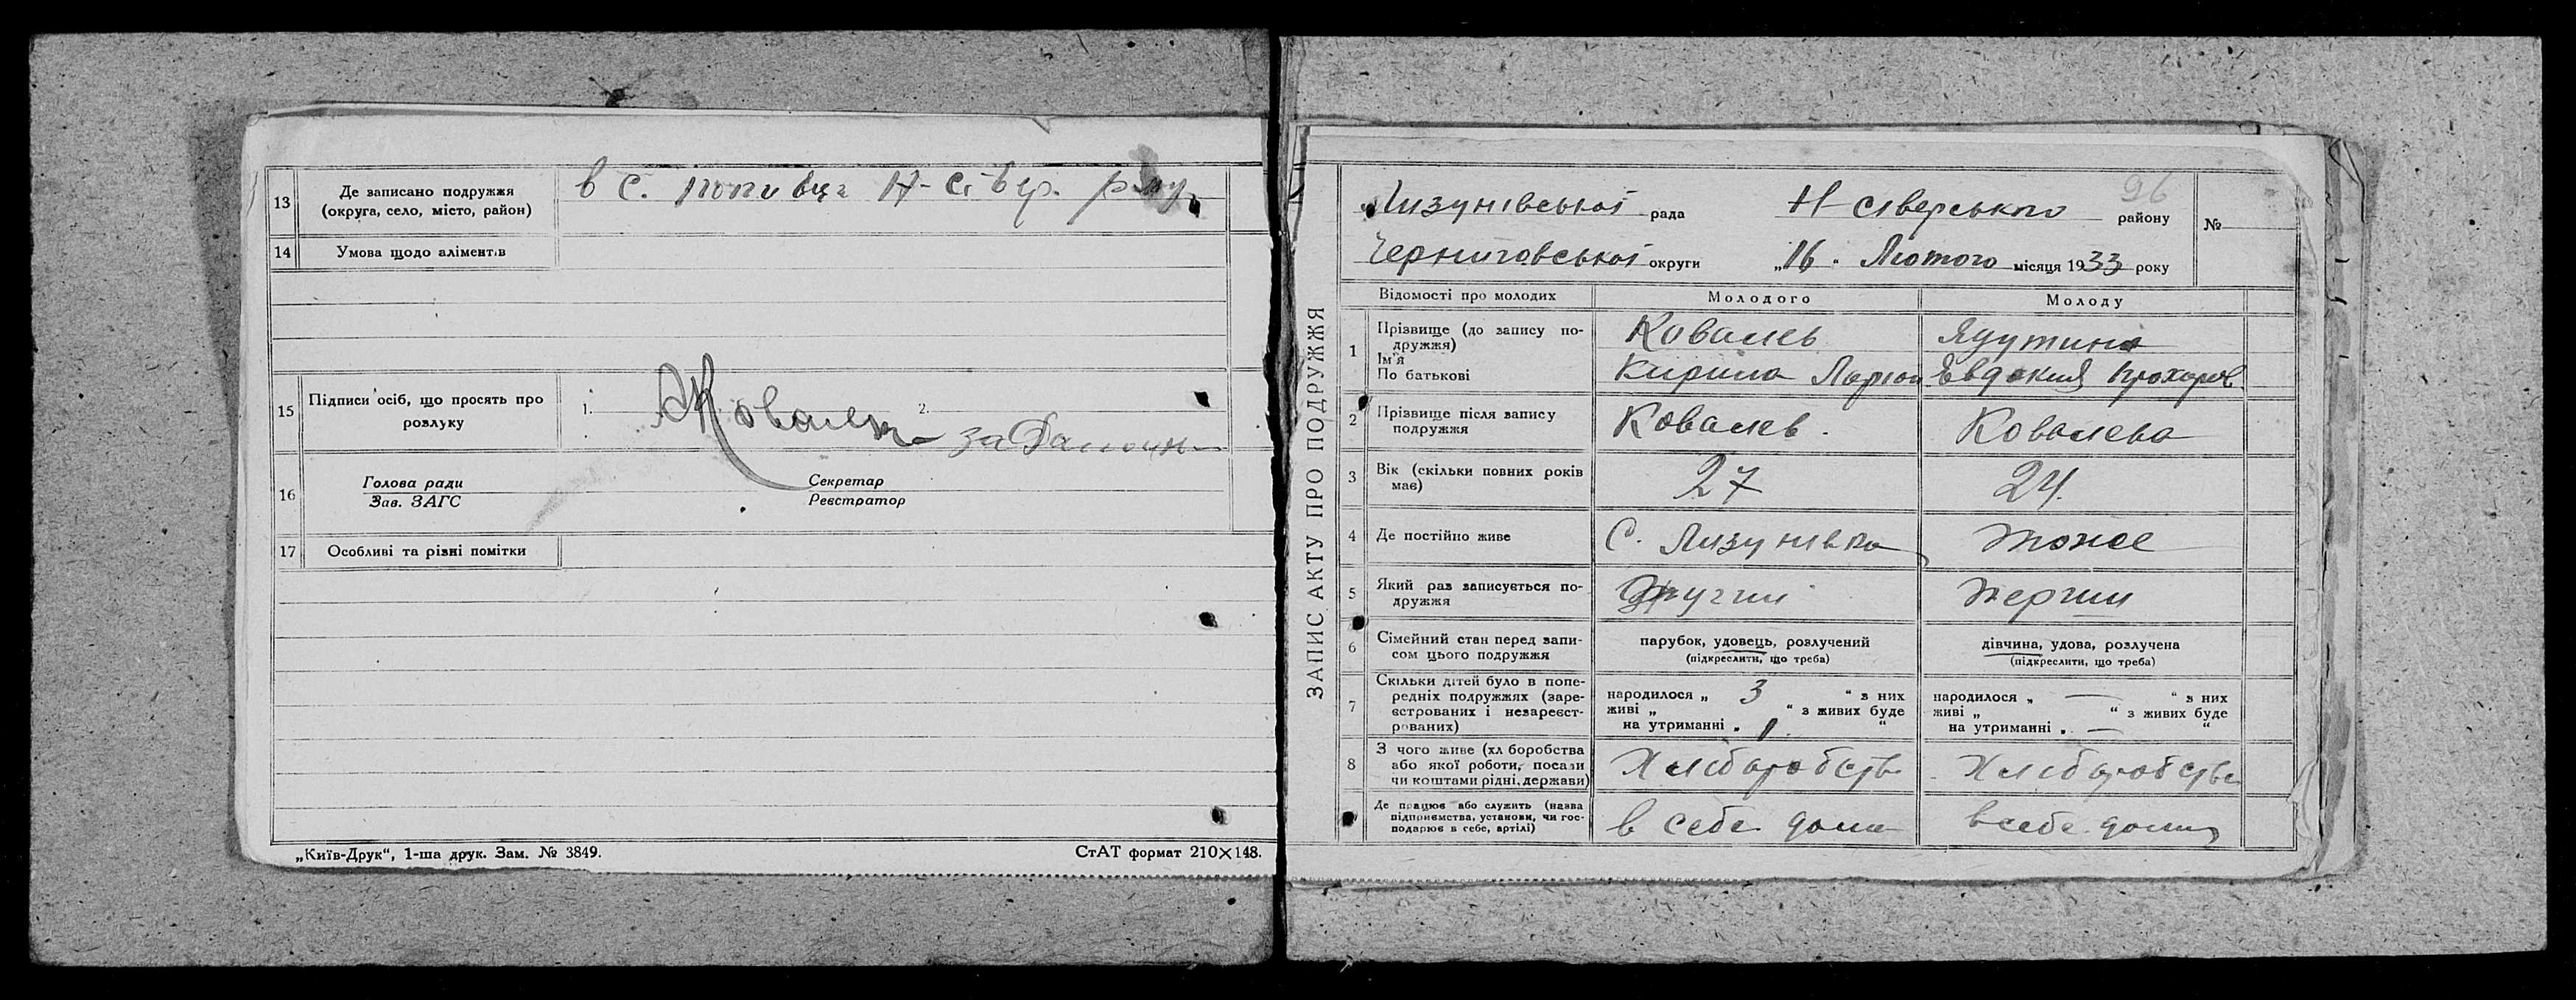 13 Де записано подружжя
(округа, село, місто, район)
в с. попивці Н-Сівер. р-ну
14 Умова щодо аліментів
15 Підписи осіб, що просять про
розлуку
1. 2.
16 Голова ради
Зав. ЗАГС
Секретар
Реєстратор
17 Особливі та різні помітки
„Київ-Друк“, 1-ша друк. Зам. № 3849.
СтАТ формат 210×148.
ЗАПИС АКТУ ПРО ПОДРУЖЖЯ
96
Лизунівської рада Н-сіверського району №
Черниговської округи „16" Лютого місяця 1933 року
Відомості про молодих Молодого Молоду
1 Прізвище (до запису по-
дружжя)
Ім'я
По батькові
Ковалев
Кирило Ларіон
Євдокия Прохоров
2 Прізвище після запису
подружжя
Ковалев. Ковалева
3 Вік (скільки повних років
має)
27 24.
4 Де постійно живе С. Лизунівка тоже
5 Який раз записується по-
дружжя
Другий Первий
6 Сімейний стан перед запи-
сом цього подружжя
парубок, удовець, розлучений
(підкреслити, що треба)
дівчина, удова, розлучена
(підкреслити, що треба)
7 Скільки дітей було в попе-
редніх подружжях (заре-
єстрованих і незареєст-
рованих)
народилося „ 3 “ з них
живі „ “ з живих буде
на утриманні „ 1 “
народилося „ — “ з них
живі „ “ з живих буде
на утриманні „ — “
8 З чого живе (хліборобства
або якої роботи, посади
чи коштами рідні, держави)
Хліборобство Хліборобство
Де працює або служить (назва
підприємства, установи, чи гос-
подарює в себе, артілі)
в себе дома в себе дома